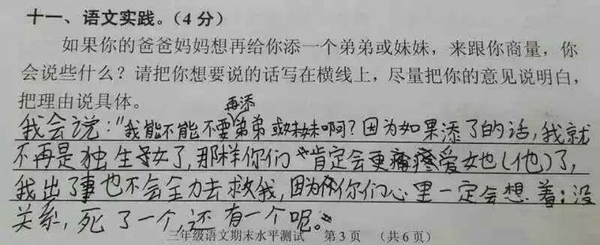 十一、语文实践。（4分）
如果你的爸爸妈妈想再给你添一个弟弟或妹妹，来跟你商量，你
会说些什么？请把你想要说的话写在横线上，尽量把你的意见说明白，
把理由说具体。
再添
我会说："我能不能不要弟弟或妹妹啊？因为如果添了的话，我就
不再是独生子女了，那样你们肯定会更疼爱她(他)了，
我出了事也不会全力去救我，因为你们心里一定会想着：没
关系，死了一个，还有一个呢。"
三年级语文期末水平测试 第3页 （共6页）